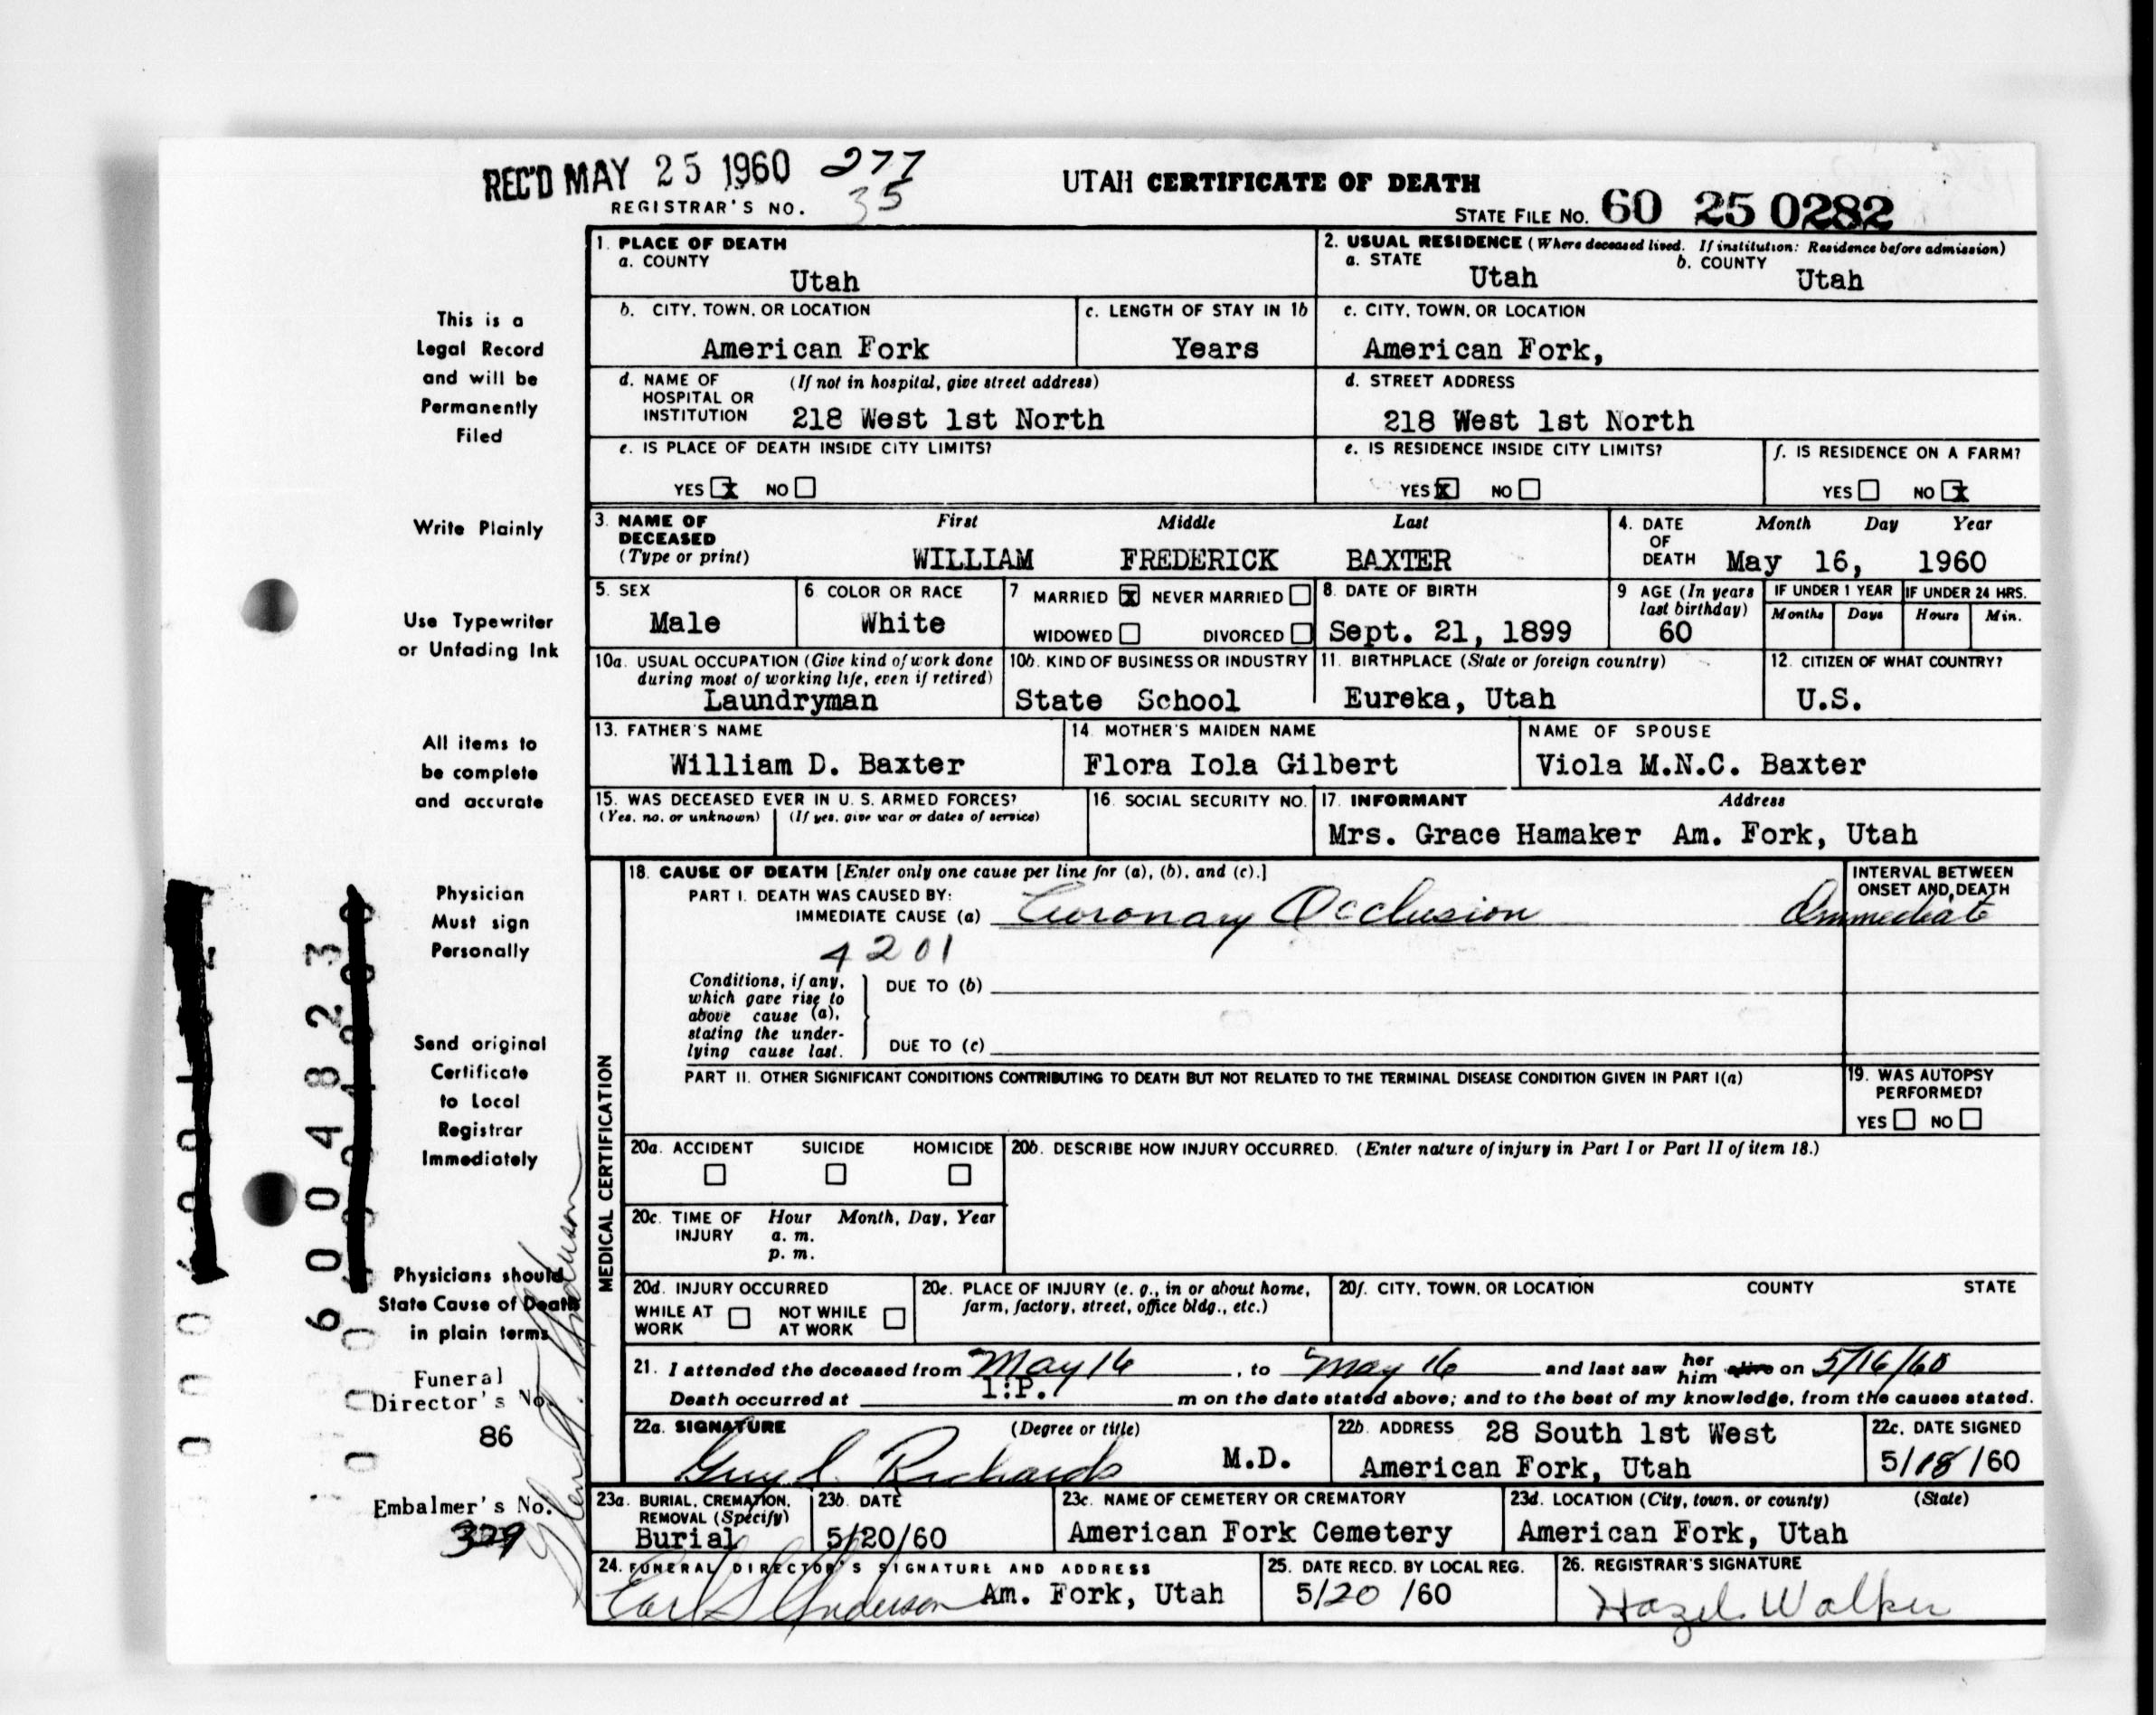 REC'D MAY 25 1960 277
REGISTRAR'S NO. 35
UTAH CERTIFICATE OF DEATH
STATE FILE NO. 60 25 0282
1. PLACE OF DEATH
a. COUNTY
Utah
2. USUAL RESIDENCE (Where deceased lived. If institution: Residence before admission)
a. STATE Utah b. COUNTY Utah
b. CITY, TOWN, OR LOCATION
American Fork
c. LENGTH OF STAY IN 1b
Years
c. CITY, TOWN, OR LOCATION
American Fork,
d. NAME OF HOSPITAL OR INSTITUTION (If not in hospital, give street address)
218 West 1st North
d. STREET ADDRESS
218 West 1st North
e. IS PLACE OF DEATH INSIDE CITY LIMITS?
YES X NO
e. IS RESIDENCE INSIDE CITY LIMITS?
YES X NO
f. IS RESIDENCE ON A FARM?
YES NO X
3. NAME OF DECEASED (Type or print)
First Middle Last
WILLIAM FREDERICK BAXTER
4. DATE OF DEATH
Month Day Year
May 16, 1960
5. SEX
Male
6 COLOR OR RACE
White
7 MARRIED X NEVER MARRIED
WIDOWED DIVORCED
8. DATE OF BIRTH
Sept. 21, 1899
9 AGE (In years last birthday)
60
IF UNDER 1 YEAR
Months Days
IF UNDER 24 HRS.
Hours Min.
10a. USUAL OCCUPATION (Give kind of work done during most of working life, even if retired)
Laundryman
10b. KIND OF BUSINESS OR INDUSTRY
State School
11. BIRTHPLACE (State or foreign country)
Eureka, Utah
12. CITIZEN OF WHAT COUNTRY?
U.S.
13. FATHER'S NAME
William D. Baxter
14. MOTHER'S MAIDEN NAME
Flora Iola Gilbert
NAME OF SPOUSE
Viola M.N.C. Baxter
15. WAS DECEASED EVER IN U. S. ARMED FORCES?
(Yes, no, or unknown) (If yes, give war or dates of service)
16. SOCIAL SECURITY NO.
17. INFORMANT Address
Mrs. Grace Hamaker Am. Fork, Utah
MEDICAL CERTIFICATION
18. CAUSE OF DEATH [Enter only one cause per line for (a), (b), and (c).]
PART I. DEATH WAS CAUSED BY:
IMMEDIATE CAUSE (a) Coronary Occlusion
INTERVAL BETWEEN ONSET AND DEATH
Immediate
4201
Conditions, if any, which gave rise to above cause (a), stating the underlying cause last.
DUE TO (b)
DUE TO (c)
PART II. OTHER SIGNIFICANT CONDITIONS CONTRIBUTING TO DEATH BUT NOT RELATED TO THE TERMINAL DISEASE CONDITION GIVEN IN PART I(a)
19. WAS AUTOPSY PERFORMED?
YES NO
20a. ACCIDENT SUICIDE HOMICIDE
20b. DESCRIBE HOW INJURY OCCURRED. (Enter nature of injury in Part I or Part II of item 18.)
20c. TIME OF INJURY Hour Month, Day, Year
a. m.
p. m.
20d. INJURY OCCURRED
WHILE AT WORK NOT WHILE AT WORK
20e. PLACE OF INJURY (e. g., in or about home, farm, factory, street, office bldg., etc.)
20f. CITY, TOWN, OR LOCATION COUNTY STATE
21. I attended the deceased from May 16, to May 16 and last saw her him alive on 5/16/60
Death occurred at 1:P. m on the date stated above; and to the best of my knowledge, from the causes stated.
22a. SIGNATURE (Degree or title)
Guy S. Richards M.D.
22b. ADDRESS 28 South 1st West
American Fork, Utah
22c. DATE SIGNED
5/18/60
23a. BURIAL, CREMATION, REMOVAL (Specify)
Burial
23b. DATE
5/20/60
23c. NAME OF CEMETERY OR CREMATORY
American Fork Cemetery
23d. LOCATION (City, town, or county) (State)
American Fork, Utah
24. FUNERAL DIRECTOR'S SIGNATURE AND ADDRESS
Earl S Anderson Am. Fork, Utah
25. DATE RECD. BY LOCAL REG.
5/20/60
26. REGISTRAR'S SIGNATURE
Hazel Walker
This is a
Legal Record
and will be
Permanently
Filed
Write Plainly
Use Typewriter
or Unfading Ink
All items to
be complete
and accurate
Physician
Must sign
Personally
Send original
Certificate
to Local
Registrar
Immediately
Physicians should
State Cause of Death
in plain terms
Funeral
Director's No.
86
Embalmer's No.
329
6004823
Anderson